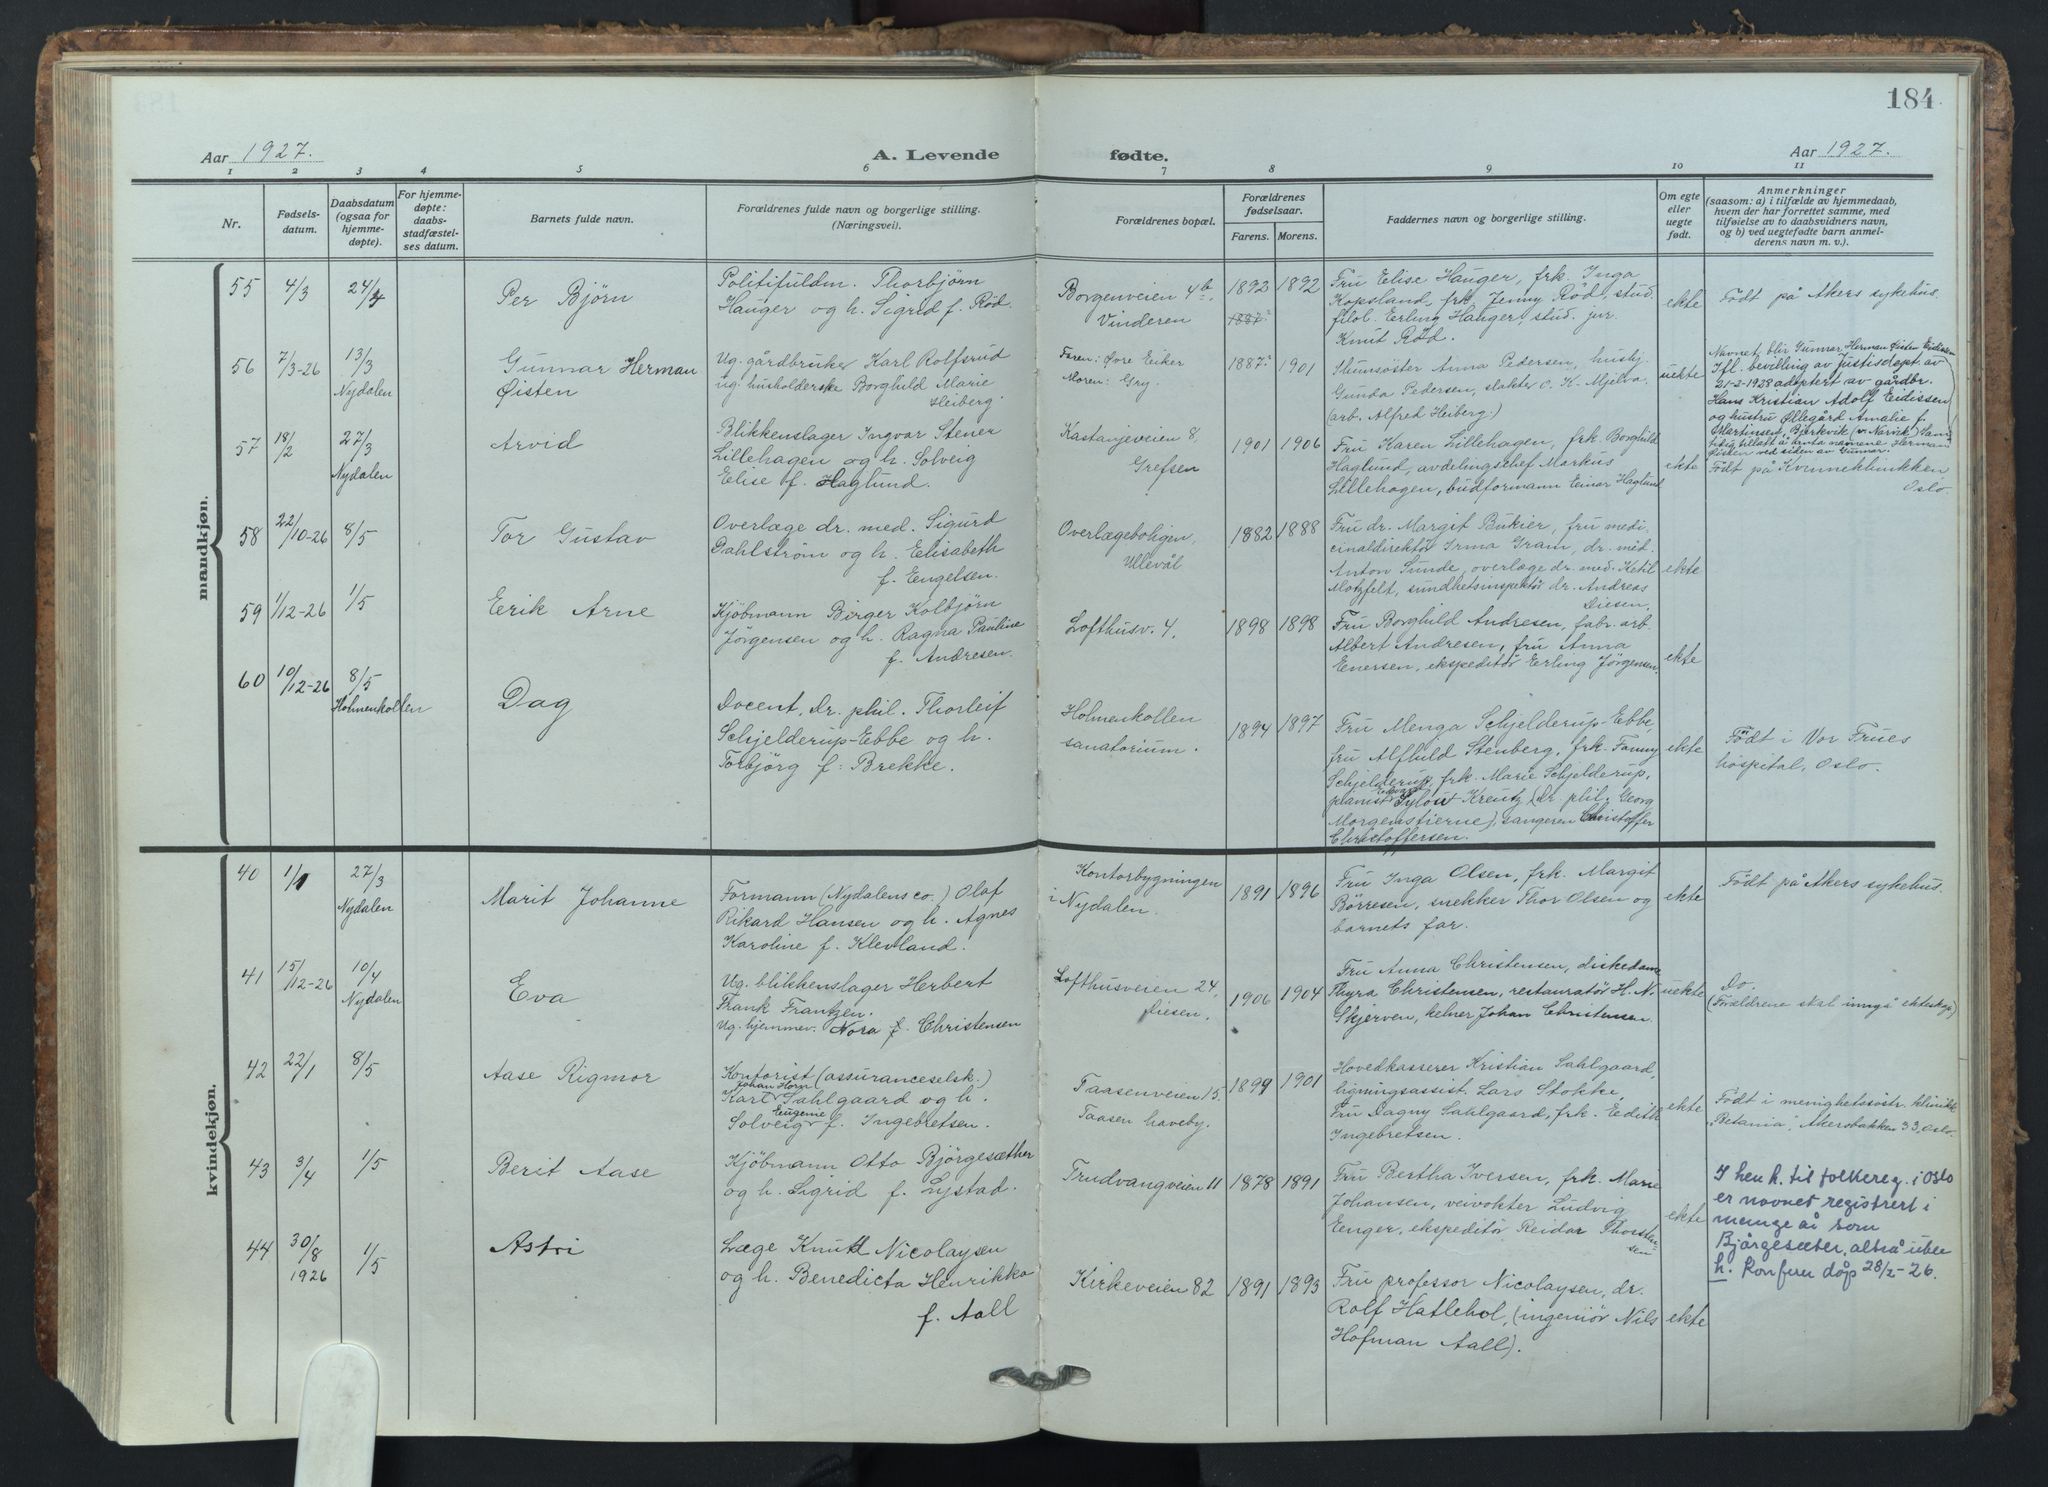 184
Aar 1927.
A. Levende fødte.
Aar 1927.
1 2 3 4 5 6 7 8 9 10 11
Nr.
Fødsels-
datum.
Daabsdatum
(ogsaa for
hjemme-
døpte).
For hjemme-
døpte:
daabs-
stadfæstel-
ses datum.
Barnets fulde navn.
Forældrenes fulde navn og borgerlige stilling.
(Næringsvei).
Forældrenes bopæl.
Forældrenes
fødselsaar.
Farens. Morens.
Faddernes navn og borgerlige stilling.
Om egte
eller
uegte
født.
Anmerkninger
(saasom: a) i tilfælde av hjemmedaab,
hvem der har forrettet samme, med
tilføielse av to daabsvidners navn,
og b) ved uegtefødte barn anmel-
derens navn m. v.).
mandkjøn.
55 4/3 24/4 Per Bjørn
Politifuldm. Thorbjørn
Hauger og h. Sigrid f. Rød.
Borgenveien 4b,
Vinderen
1892 1892
1887
Fru Elise Hauger, frk. Inga
Kopsland, frk. Jenny Rød, stud.
filol. Erling Hauger, stud. jur.
Knut Rød.
ekte
Født på Akers sykehus.
56 7/3-26 13/3
Nydalen
Gunnar Herman
Øisten
Ug. gårdbruker Karl Rolfsrud
ug. husholderske Borghild Marie
Heiberg.
Faren: Øvre Eiker
Moren: Gry.
1887 1901
Mumsöster Anna Pedersen, husbj.
Gunda Pedersen, slakter O. K. Mjelva,
(arb. Alfred Heiberg.)
uekte
Navnet blir Gunnar Herman Øisten Eidissen
Ifl. bevilling av Justisdept. av
21-2-1928 adoptert av gårdbr.
Hans Kristian Adolf Eidissen
og hustru Øllegård Amalie f.
Martinsen, Bjerkvik (v. Narvik) Sam-
tidig tillatt å anta navnene Herman
Øisten ved siden av Gunnar.
57 18/2 27/3
Nydalen
Arvid
Blikkenslager Ingvar Stener
Lillehagen og h. Solveig
Elise f. Haglund.
Kastanjeveien 8,
Grefsen
1901 1906
Fru Karen Lillehagen, frk. Borghild
Haglund, avdelingschef Markus
Lillehagen, budformann Einar Haglund
ekte
Født på Kvinneklinikken
Oslo.
58 22/10-26 8/5 Tor Gustav
Overlæge dr. med. Sigurd
Dahlström og h. Elisabeth
f. Engelsen.
Overlægeboligen,
Ullevål
1882 1888
Fru dr. Margit Bukier, fru medi-
cinaldirektör Irma Gram, dr. med.
Anton Sunde, overlæge dr. med. Ketil
Motzfelt, sundhetsinspektör dr. Andreas
Diesen.
ekte
59 1/12-26 1/5 Eerik Arne
Kjöbmann Birger Kolbjörn
Jörgensen og h. Ragna Pauline
f. Andresen.
Lofthusv. 4.
1898 1898
Fru Borghild Andresen, fabr. arb.
Albert Andresen, fru Anna
Enersen, ekspeditör Erling Jörgensen.
ekte
60 10/12-26 8/5
Holmenkollen
Dag
Docent, Dr. phil. Thorleif
Schjelderup-Ebbe og h.
Torbjörg f. Brekke.
Holmenkollen
sanatorium.
1894 1897
Fru Menga Schjelderup-Ebbe,
fru Alfhild Stenberg, frk. Fanny
Schjelderup, frk. Marie Schjelderup,
pianist Sylou Kreutz (Dr. phil. Georg
Morgenstierne), sangeren Christoffer
Christoffersen.
ekte
Født i Vor Frues
hospital, Oslo.
kvindekjøn.
40 1/1 27/3
Nydalen
Marit Johanne
Formann (Nydalens co.) Olaf
Rikard Hansen og h. Agnes
Karoline f. Klevland.
Kontorbygningen
i Nydalen.
1891 1896
Fru Inga Olsen, frk. Margit
Börresen, snekker Thor Olsen og
barnets far.
ekte
Født på Akers sykehus.
41 15/12-26 10/4
Nydalen
Eva
Ug. blikkenslager Herbert
Frank Frantzen.
Ug. hjemmev. Nora f. Christensen
Lofthusveien 24,
Disen.
1906 1904
Fru Anna Christensen, diskedame
Thyra Christensen, restauratör H. N.
Skjerven, kelner Johan Christensen.
uekte
Do.
(Forældrene skal inngå ekteskap)
42 22/1 8/5 Aase Rigmor
Kontorist (assuranceselsk.)
Johan Horn
Karl Sahlgaard og h.
Eugenie
Solveig f. Ingebretsen.
Taasenveien 15,
Taasen haveby.
1899 1901
Hovedkasserer Kristian Sahlgaard,
ligningsassist. Lars Stokke,
Fru Dagny Sahlgaard, frk. Edith
Ingebretsen.
ekte
Født i menighetssöstr. klinikk
"Betania", Akersbakken 33, Oslo.
43 3/4 1/5 Berit Aase
Kjöbmann Otto Björgesæther
og h. Sigrid f. Lystad.
Trudvangveien 11
1878 1891
Fru Bertha Iversen, frk. Marie
Johansen, veivokter Ludvig
Enger, ekspeditör Reidar Thorsten-
sen
ekte
I hen h. til folkereg. i Oslo
er navnet registrert i
mange år som
Bjørgesæter, altså uten
h. Konferer dåp 28/2-26.
44 30/8
1926
1/5 Astri
Læge Knut Nicolaysen
og h. Benedicta Henrikka
f. Aall
Kirkeveien 82
1891 1893
Fru professor Nicolaysen, dr.
Rolf Hatlehol, (ingeniör Nils
Hofman Aall).
ekte